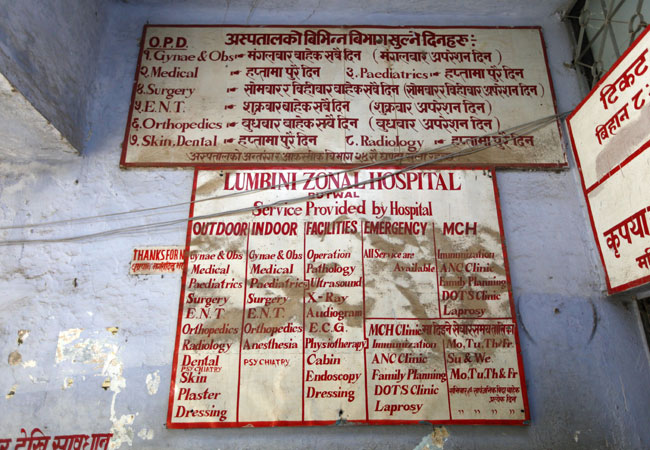 O.P.D. अस्पतालको बिभिन्न बिभाग खुल्ने दिनहरु:
१. Gynae & Obs मंगलवार बाहेक सबै दिन (मंगलवार अपरेशन दिन)
२. Medical हप्तामा पुरै दिन ३. Paediatrics हप्तामा पुरै दिन
४. Surgery सोमबार र बिहीवार बाहेक सबै दिन (सोमबार र बिहीवार अपरेशन दिन)
५. E.N.T. शुक्रबार बाहेक सबै दिन (शुक्रबार अपरेशन दिन)
६. Orthopedics बुधबार बाहेक सबै दिन (बुधबार अपरेशन दिन)
७. Skin, Dental हप्तामा पुरै दिन ८. Radiology हप्तामा पुरै दिन
अस्पतालको
LUMBINI ZONAL HOSPITAL
BUTWAL
Service Provided by Hospital
OUTDOOR INDOOR FACILITIES EMERGENCY MCH
Gynae & Obs
Medical
Paediatrics
Surgery
E.N.T.
Orthopedics
Radiology
Dental
PSYCHIATRY
Skin
Plaster
Dressing
Gynae & Obs
Medical
Paediatrics
Surgery
E.N.T.
Orthopedics
Anesthesia
PSYCHIATRY
Operation
Pathology
Ultrasound
X-Ray
Audiogram
E.C.G.
Physiotherapy
Cabin
Endoscopy
Dressing
All Service are
Available
Immunization
ANC Clinic
Family Planning
DOT'S Clinic
Laprosy
MCH Clinic
Immunization Mo, Tu, Th & Fr
ANC Clinic Su & We
Family Planning Mo, Tu, Th & Fr
DOT'S Clinic
Laprosy " " " "
THANKS FOR
टिकट
बिहान ८
कृपया
देखि सावधान